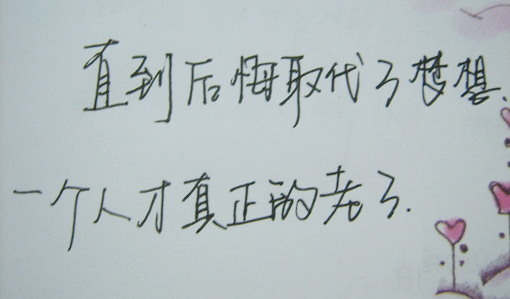 直到后悔取代了梦想.
一个人才真正的老了.